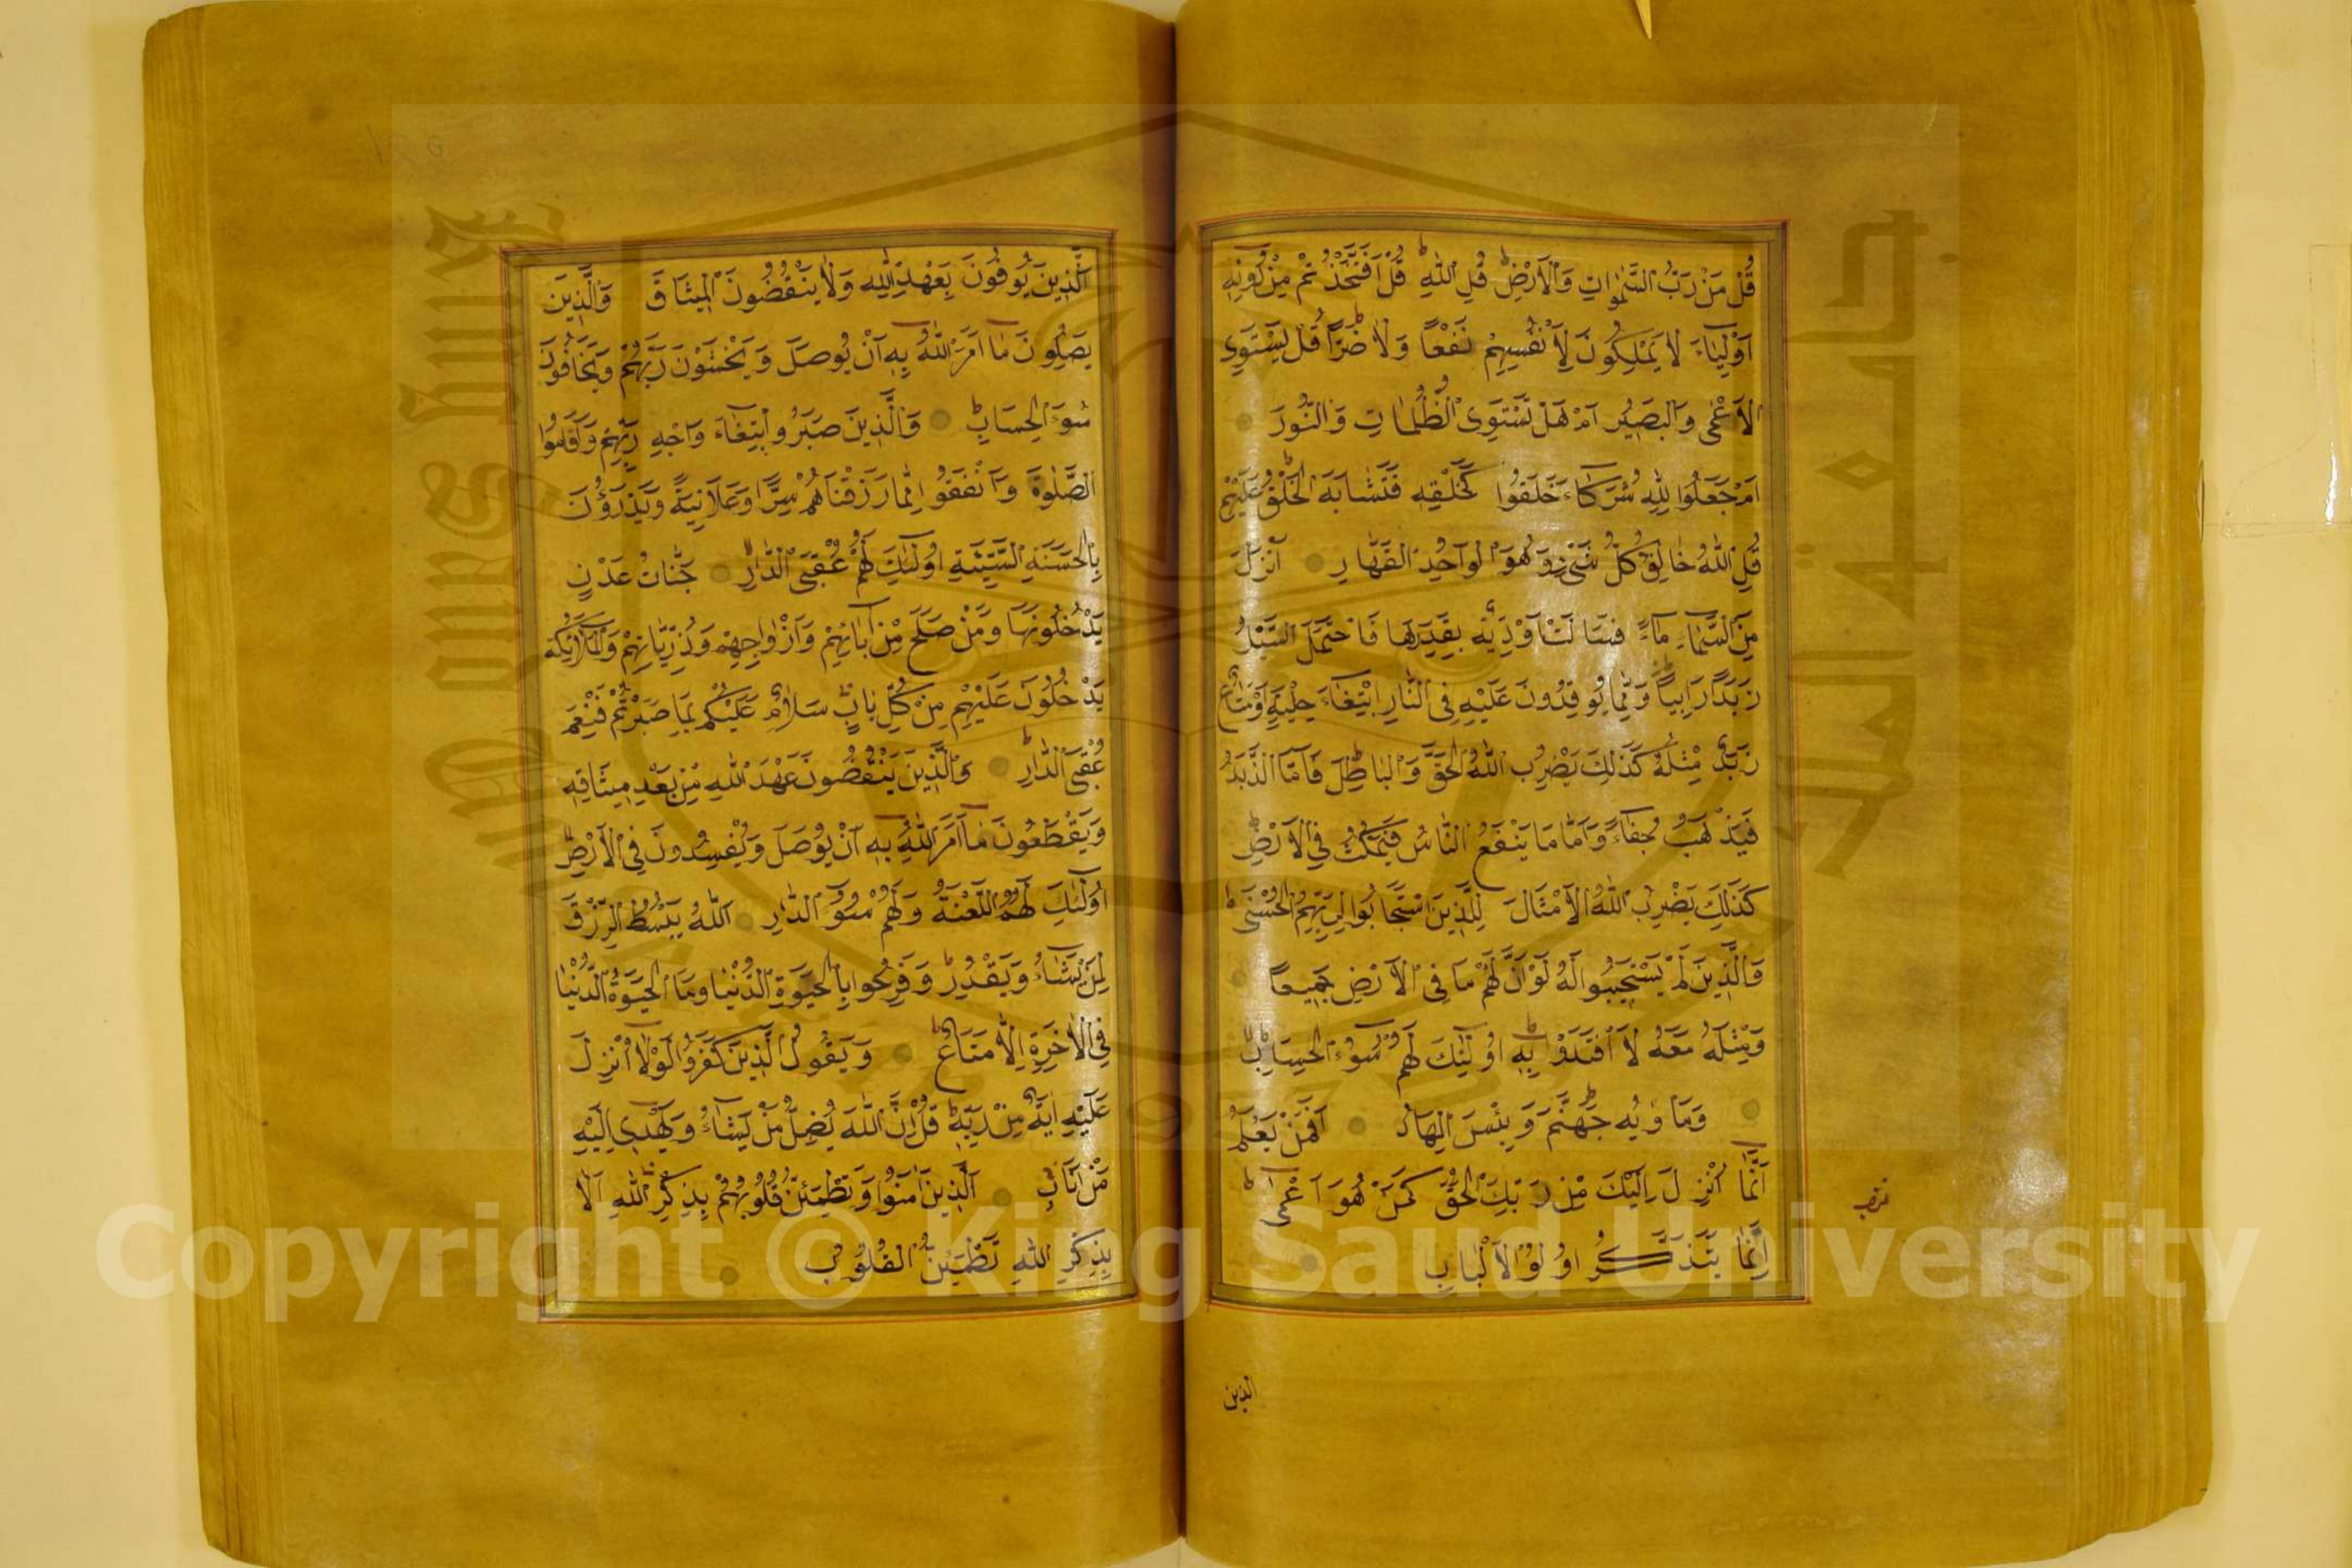 قُلْ مَنْ رَبُّ السَّمٰوَاتِ وَالْاَرْضِ قُلِ اللّٰهُ قُلْ اَفَتَّخَذْتُمْ مِنْ دُونِهِ
اَوْلِيَاءَ لَا يَمْلِكُونَ لِاَنْفُسِهِمْ نَفْعًا وَلَا ضَرًّا قُلْ هَلْ يَسْتَوِي
الْاَعْمٰى وَالْبَصِيرُ اَمْ هَلْ تَسْتَوِى الظُّلُمَاتُ وَالنُّورُ
اَمْ جَعَلُوا لِلّٰهِ شُرَكَاءَ خَلَقُوا كَخَلْقِهِ فَتَشَابَهَ الْخَلْقُ عَلَيْهِمْ
قُلِ اللّٰهُ خَالِقُ كُلِّ شَيْءٍ وَهُوَ الْوَاحِدُ الْقَهَّارُ اَنْزَلَ
مِنَ السَّمَاءِ مَاءً فَسَالَتْ اَوْدِيَةٌ بِقَدَرِهَا فَاحْتَمَلَ السَّيْلُ
زَبَدًا رَابِيًا وَمِمَّا يُوقِدُونَ عَلَيْهِ فِى النَّارِ ابْتِغَاءَ حِلْيَةٍ اَوْ مَتَاعٍ
زَبَدٌ مِثْلُهُ كَذٰلِكَ يَضْرِبُ اللّٰهُ الْحَقَّ وَالْبَاطِلَ فَاَمَّا الزَّبَدُ
فَيَذْهَبُ جُفَاءً وَاَمَّا مَا يَنْفَعُ النَّاسَ فَيَمْكُثُ فِى الْاَرْضِ
كَذٰلِكَ يَضْرِبُ اللّٰهُ الْاَمْثَالَ لِلَّذِينَ اسْتَجَابُوا لِرَبِّهِمُ الْحُسْنٰى
وَالَّذِينَ لَمْ يَسْتَجِيبُوا لَهُ لَوْ اَنَّ لَهُمْ مَا فِى الْاَرْضِ جَمِيعًا
وَمِثْلَهُ مَعَهُ لَافْتَدَوْا بِهِ اُولٰئِكَ لَهُمْ سُوءُ الْحِسَابِ
وَمَاْوٰيهُمْ جَهَنَّمُ وَبِئْسَ الْمِهَادُ اَفَمَنْ يَعْلَمُ
اَنَّمَا اُنْزِلَ اِلَيْكَ مِنْ رَبِّكَ الْحَقُّ كَمَنْ هُوَ اَعْمٰى
اِنَّمَا يَتَذَكَّرُ اُولُوا الْاَلْبَابِ
الذين
اَلَّذِينَ يُوفُونَ بِعَهْدِ اللّٰهِ وَلَا يَنْقُضُونَ الْمِيثَاقَ وَالَّذِينَ
يَصِلُونَ مَا اَمَرَ اللّٰهُ بِهِ اَنْ يُوصَلَ وَيَخْشَوْنَ رَبَّهُمْ وَيَخَافُونَ
سُوءَ الْحِسَابِ وَالَّذِينَ صَبَرُوا ابْتِغَاءَ وَجْهِ رَبِّهِمْ وَاَقَامُوا
الصَّلٰوةَ وَاَنْفَقُوا مِمَّا رَزَقْنَاهُمْ سِرًّا وَعَلَانِيَةً وَيَدْرَؤُنَ
بِالْحَسَنَةِ السَّيِّئَةَ اُولٰئِكَ لَهُمْ عُقْبَى الدَّارِ جَنَّاتُ عَدْنٍ
يَدْخُلُونَهَا وَمَنْ صَلَحَ مِنْ اٰبَائِهِمْ وَاَزْوَاجِهِمْ وَذُرِّيَّاتِهِمْ وَالْمَلٰئِكَةُ
يَدْخُلُونَ عَلَيْهِمْ مِنْ كُلِّ بَابٍ سَلَامٌ عَلَيْكُمْ بِمَا صَبَرْتُمْ فَنِعْمَ
عُقْبَى الدَّارِ وَالَّذِينَ يَنْقُضُونَ عَهْدَ اللّٰهِ مِنْ بَعْدِ مِيثَاقِهِ
وَيَقْطَعُونَ مَا اَمَرَ اللّٰهُ بِهِ اَنْ يُوصَلَ وَيُفْسِدُونَ فِى الْاَرْضِ
اُولٰئِكَ لَهُمُ اللَّعْنَةُ وَلَهُمْ سُوءُ الدَّارِ اَللّٰهُ يَبْسُطُ الرِّزْقَ
لِمَنْ يَشَاءُ وَيَقْدِرُ وَفَرِحُوا بِالْحَيٰوةِ الدُّنْيَا وَمَا الْحَيٰوةُ الدُّنْيَا
فِى الْاٰخِرَةِ اِلَّا مَتَاعٌ وَيَقُولُ الَّذِينَ كَفَرُوا لَوْلَا اُنْزِلَ
عَلَيْهِ اٰيَةٌ مِنْ رَبِّهِ قُلْ اِنَّ اللّٰهَ يُضِلُّ مَنْ يَشَاءُ وَيَهْدِى اِلَيْهِ
مَنْ اَنَابَ اَلَّذِينَ اٰمَنُوا وَتَطْمَئِنُّ قُلُوبُهُمْ بِذِكْرِ اللّٰهِ اَلَا
بِذِكْرِ اللّٰهِ تَطْمَئِنُّ الْقُلُوبُ
Copyright © King Saud University